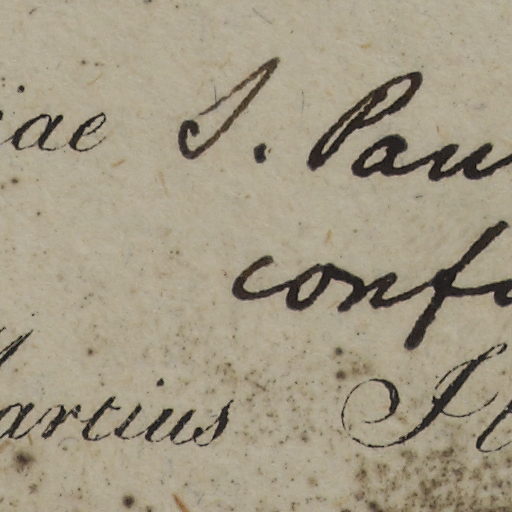 iae S. Pau
conf
artius